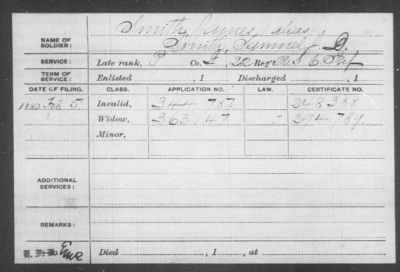 NAME OF SOLDIER: Smith, James, alias
Smith, Samuel D.
SERVICE: Late rank, P Co. E, 32 Reg't U.S. C Inf
TERM OF SERVICE: Enlisted , 1 Discharged , 1
DATE OF FILING. CLASS. APPLICATION NO. LAW. CERTIFICATE NO.
1880 Feb 5 Invalid, 344 787 248 388
Widow, 363 147 294 789
Minor,
ADDITIONAL SERVICES:
REMARKS:
Died , 1 , at